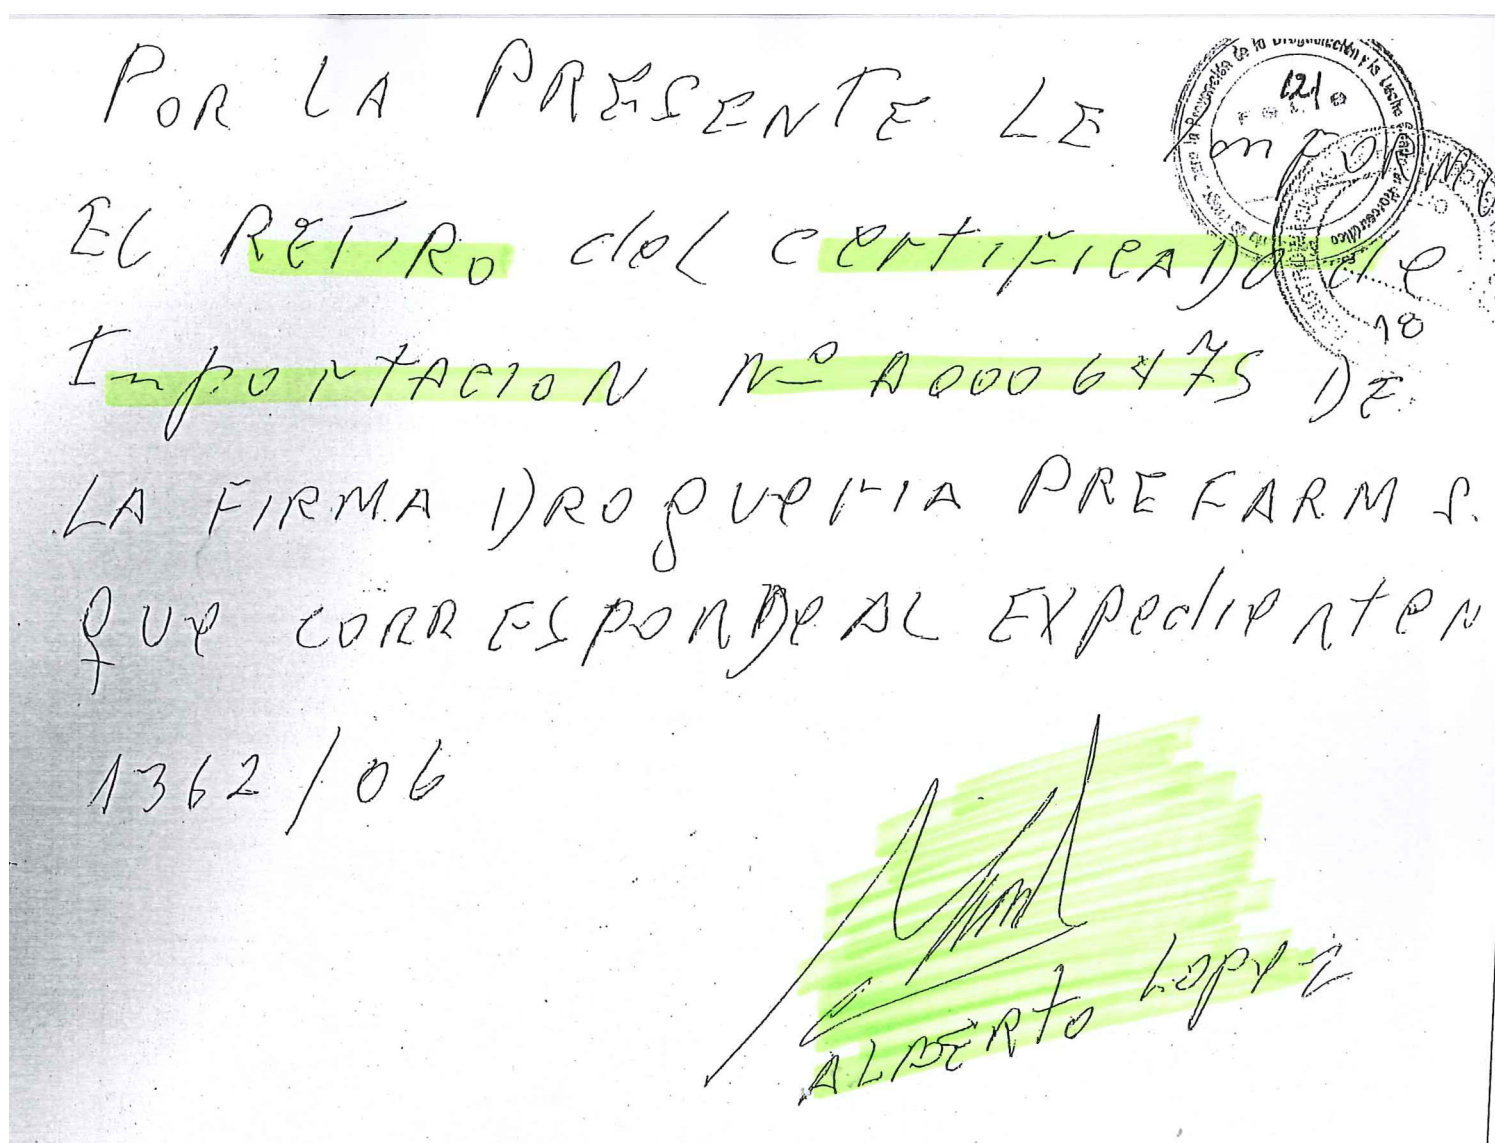 POR LA PRESENTE LE InFORMO
EL RETIRO del certifICADO de
ImportACION Nº A0006475 DE
LA FIRMA DROgueria PREFARM S.
QUe CORRESPONDe AL EXpedienten
1362/06
ALBERTO Lopez
121
FOLIO
18